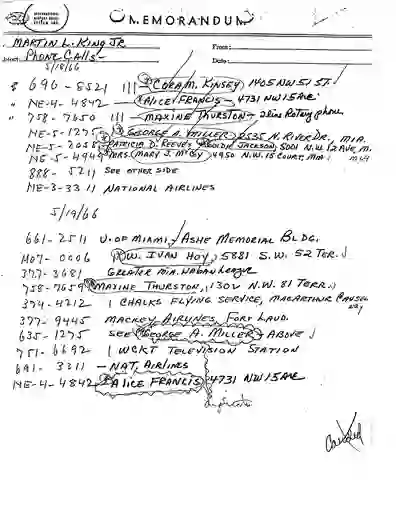 MEMORANDUM
MARTIN L. KING JR.
From:
PHONE CALLS -
Date:
5/18/66
690-8521 111 CORA M. KINSEY 1405 NW 51 ST.
" NE-4-4842 ALICE FRANCIS - 4731 NW 15 AVE
" 758-7650 111 MAXINE THURSTON - 2 line Rotary phone
NE-5-1275 GEORGE A. MILLER, 2535 N. RIVER DR, MIA.
NE-5-2058 PATRICIA D. REEVES JACKSON, 5001 N.W. 12 AVE, M.
NE-5-4949 MRS. MARY J. McCOY 4950 N.W. 15 COURT, MIA
888-5211 SEE OTHER SIDE
NE-3-3311 NATIONAL AIRLINES
5/19/66
661-2511 U. OF MIAMI, ASHE MEMORIAL BLDG.
MO7-0006 W. IVAN HOY, 5881 S.W. 52 TER.
377-3681 GREATER MIA. URBAN League
758-7659 MAXINE THURSTON, 1301 N.W. 81 TERR.
374-4212 1 CHALKS FLYING SERVICE, MACARTHUR CAUSEWAY
377-9445 MACKEY AIRLINES, FORT LAUD.
635-1275 SEE GEORGE A. MILLER ABOVE
751-6692 1 WCKT TELEVISION STATION
691-3311 - NAT. AIRLINES
NE-4-4842 ALICE FRANCIS 4731 NW 15 AVE
duplicate